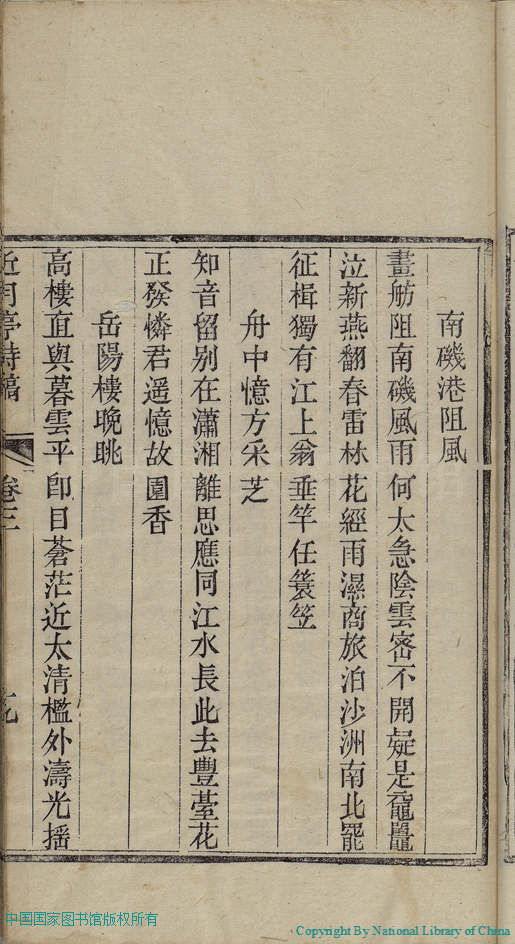 南磯港阻風
畫舫阻南磯風雨何太急陰雲密不開疑是黿鼉
泣新燕翻春雷林花經雨濕商旅泊沙洲南北罷
征楫獨有江上翁垂竿任簑笠
舟中憶方采芝
知音留别在瀟湘離思應同江水長此去豐臺花
正發憐君遥憶故園香
岳陽樓晚眺
高樓直與暮雲平卽目蒼茫近太清檻外濤光揺
近月亭詩稿 卷三 九
中国国家图书馆版权所有
Copyright By National Library of China